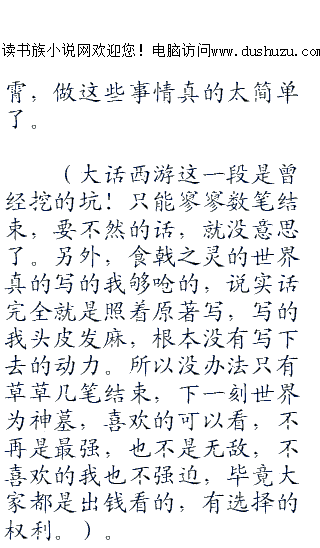 读书族小说网欢迎您！电脑访问www.dushuzu.com
霄，做这些事情真的太简单
了。
（大话西游这一段是曾
经挖的坑！只能寥寥数笔结
束，要不然的话，就没意思
了。另外，食戟之灵的世界
真的写的我够呛的，说实话
完全就是照着原著写，写的
我头皮发麻，根本没有写下
去的动力。所以没办法只有
草草几笔结束，下一刻世界
为神墓，喜欢的可以看，不
再是最强，也不是无敌，不
喜欢的我也不强迫，毕竟大
家都是出钱看的，有选择的
权利。）。